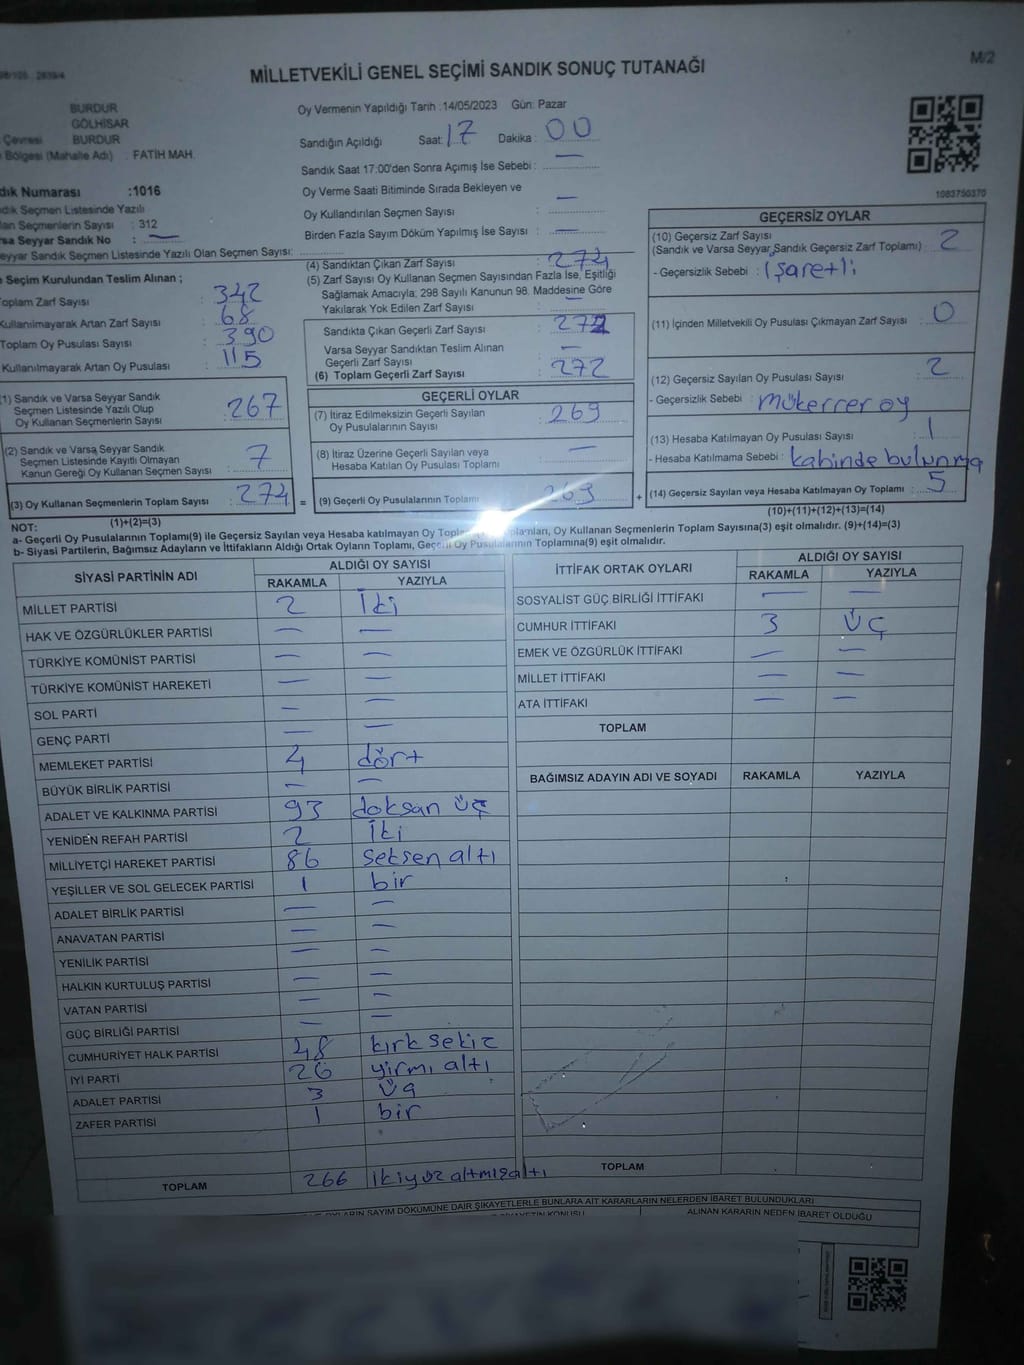 M/2
MİLLETVEKİLİ GENEL SEÇİMİ SANDIK SONUÇ TUTANAĞI
BURDUR
GÖLHİSAR
Çevresi BURDUR
Bölgesi (Mahalle Adı) : FATİH MAH.
dık Numarası :1016
dık Seçmen Listesinde Yazılı
lan Seçmenlerin Sayısı : 312
rsa Seyyar Sandık No : —
eyyar Sandık Seçmen Listesinde Yazılı Olan Seçmen Sayısı:
Oy Vermenin Yapıldığı Tarih :14/05/2023 Gün: Pazar
Sandığın Açıldığı Saat: 17 Dakika : 00
Sandık Saat 17:00'den Sonra Açımış İse Sebebi : —
Oy Verme Saati Bitiminde Sırada Bekleyen ve —
Oy Kullandırılan Seçmen Sayısı :
Birden Fazla Sayım Döküm Yapılmış İse Sayısı : —
1083750370
Seçim Kurulundan Teslim Alınan ;
Toplam Zarf Sayısı : 342
Kullanılmayarak Artan Zarf Sayısı : 68
Toplam Oy Pusulası Sayısı : 390
Kullanılmayarak Artan Oy Pusulası : 115
(1) Sandık ve Varsa Seyyar Sandık
Seçmen Listesinde Yazılı Olup
Oy Kullanan Seçmenlerin Sayısı : 267
(2) Sandık ve Varsa Seyyar Sandık
Seçmen Listesinde Kayıtlı Olmayan
Kanun Gereği Oy Kullanan Seçmen Sayısı : 7
(3) Oy Kullanan Seçmenlerin Toplam Sayısı : 274
(1)+(2)=(3)
(4) Sandıktan Çıkan Zarf Sayısı : 274
(5) Zarf Sayısı Oy Kullanan Seçmen Sayısından Fazla İse, Eşitliği
Sağlamak Amacıyla; 298 Sayılı Kanunun 98. Maddesine Göre
Yakılarak Yok Edilen Zarf Sayısı : —
Sandıkta Çıkan Geçerli Zarf Sayısı : 272
Varsa Seyyar Sandıktan Teslim Alınan
Geçerli Zarf Sayısı : —
(6) Toplam Geçerli Zarf Sayısı : 272
GEÇERLİ OYLAR
(7) İtiraz Edilmeksizin Geçerli Sayılan
Oy Pusulalarının Sayısı : 269
(8) İtiraz Üzerine Geçerli Sayılan veya
Hesaba Katılan Oy Pusulası Toplamı : —
= (9) Geçerli Oy Pusulalarının Toplamı : 269 +
GEÇERSİZ OYLAR
(10) Geçersiz Zarf Sayısı
(Sandık ve Varsa Seyyar Sandık Geçersiz Zarf Toplamı) : 2
- Geçersizlik Sebebi : işaretli
(11) İçinden Milletvekili Oy Pusulası Çıkmayan Zarf Sayısı : 0
(12) Geçersiz Sayılan Oy Pusulası Sayısı : 2
- Geçersizlik Sebebi : mükerrer oy
(13) Hesaba Katılmayan Oy Pusulası Sayısı : 1
- Hesaba Katılmama Sebebi : kabinde bulunma
(14) Geçersiz Sayılan veya Hesaba Katılmayan Oy Toplamı : 5
(10)+(11)+(12)+(13)=(14)
NOT:
a- Geçerli Oy Pusulalarının Toplamı(9) ile Geçersiz Sayılan veya Hesaba katılmayan Oy Oy Kullanan Seçmenlerin Toplam Sayısına(3) eşit olmalıdır. (9)+(14)=(3)
b- Siyasi Partilerin, Bağımsız Adayların ve İttifakların Aldığı Ortak Oyların Toplamı, Geçerli Oy Pusulalarının Toplamına(9) eşit olmalıdır.
SİYASİ PARTİNİN ADI ALDIĞI OY SAYISI
RAKAMLA YAZIYLA
MİLLET PARTİSİ 2 iki
HAK VE ÖZGÜRLÜKLER PARTİSİ — —
TÜRKİYE KOMÜNİST PARTİSİ — —
TÜRKİYE KOMÜNİST HAREKETİ — —
SOL PARTİ — —
GENÇ PARTİ — —
MEMLEKET PARTİSİ 4 dört
BÜYÜK BİRLİK PARTİSİ — —
ADALET VE KALKINMA PARTİSİ 93 doksan üç
YENİDEN REFAH PARTİSİ 2 iki
MİLLİYETÇİ HAREKET PARTİSİ 86 seksen altı
YEŞİLLER VE SOL GELECEK PARTİSİ 1 bir
ADALET BİRLİK PARTİSİ — —
ANAVATAN PARTİSİ — —
YENİLİK PARTİSİ — —
HALKIN KURTULUŞ PARTİSİ — —
VATAN PARTİSİ — —
GÜÇ BİRLİĞİ PARTİSİ — —
CUMHURİYET HALK PARTİSİ 48 kırk sekiz
İYİ PARTİ 26 yirmi altı
ADALET PARTİSİ 3 üç
ZAFER PARTİSİ 1 bir
TOPLAM 266 ikiyüz altmışaltı
İTTİFAK ORTAK OYLARI ALDIĞI OY SAYISI
RAKAMLA YAZIYLA
SOSYALİST GÜÇ BİRLİĞİ İTTİFAKI — —
CUMHUR İTTİFAKI 3 üç
EMEK VE ÖZGÜRLÜK İTTİFAKI — —
MİLLET İTTİFAKI — —
ATA İTTİFAKI — —
TOPLAM
BAĞIMSIZ ADAYIN ADI VE SOYADI RAKAMLA YAZIYLA
TOPLAM
OYLARIN SAYIM DÖKÜMÜNE DAİR ŞİKAYETLERLE BUNLARA AİT KARARLARIN NELERDEN İBARET BULUNDUKLARI
ALINAN KARARIN NEDEN İBARET OLDUĞU